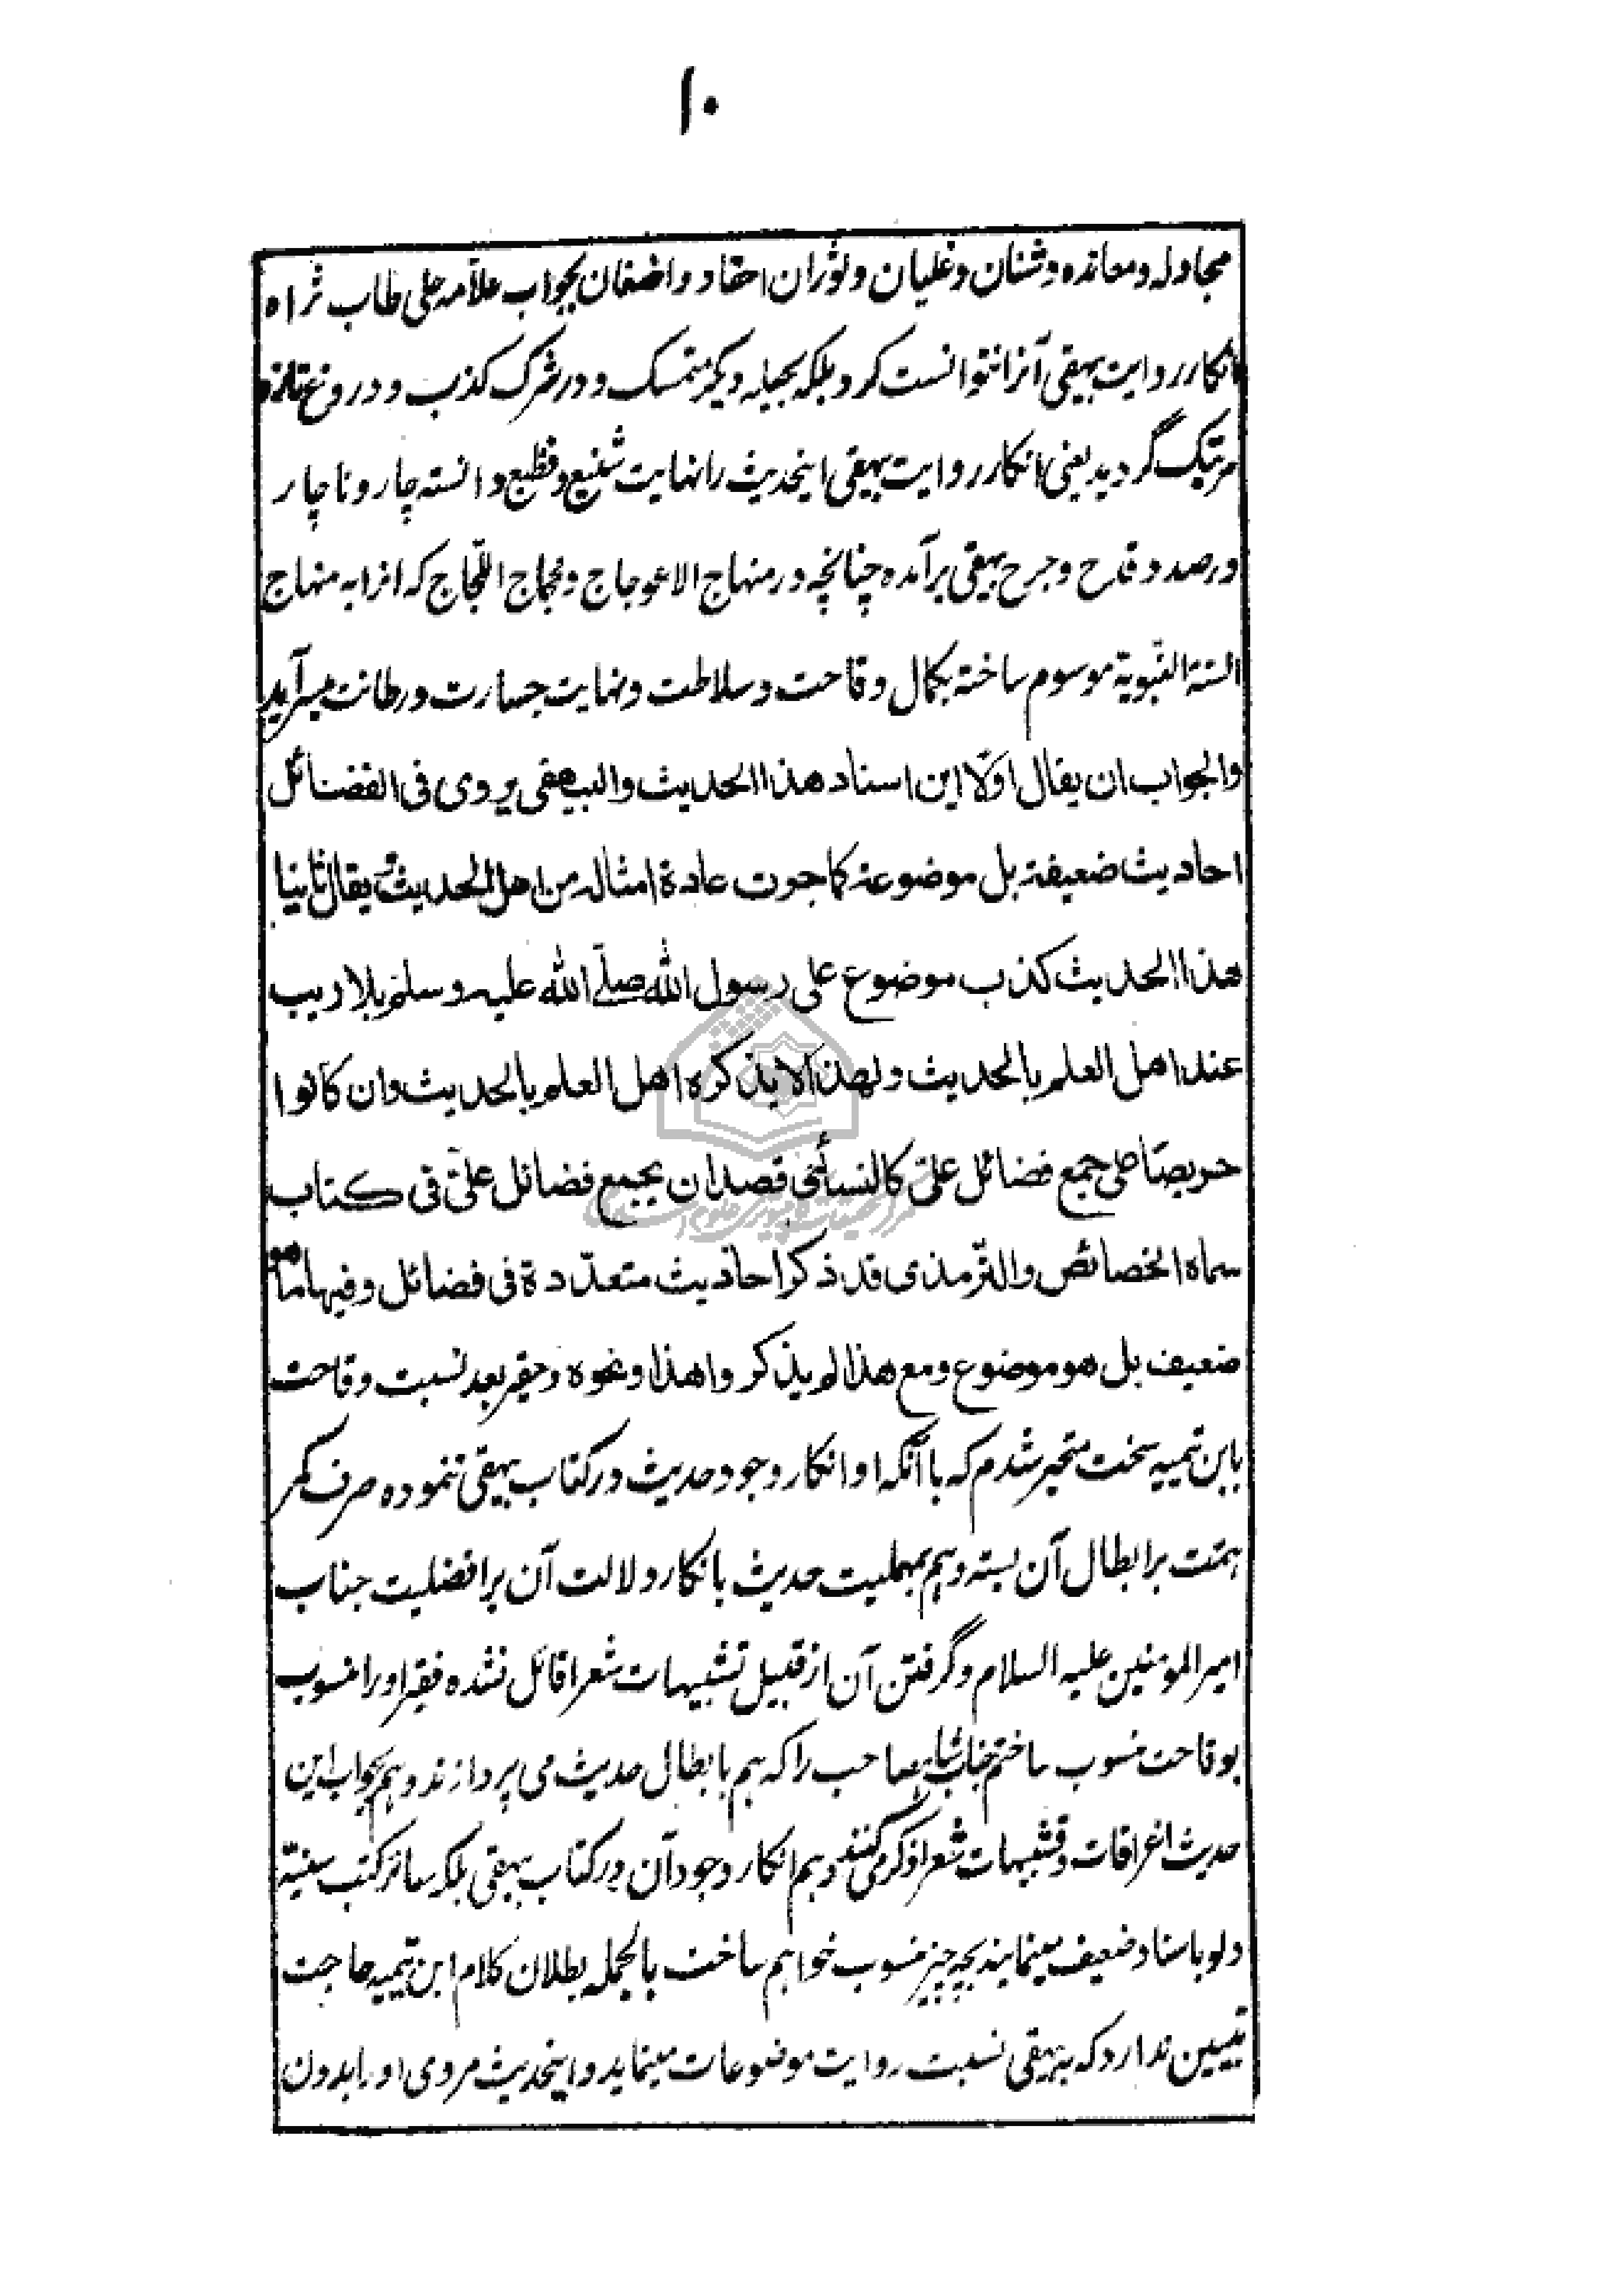 ۱۰
مجادله و معانده و شنان و غلیان و ثوران احقاد و اضغان بجواب علامه حلی طاب ثراه
انکار روایت بیهقی آنرا نتوانست کرد بلکه بحیله دیگر متمسک و در شرک کذب و دروغ تازه
مرتبک گردید یعنی انکار روایت بیهقی اینحدیث را نهایت شنیع و فظیع دانسته چار و ناچار
درصدد قدح و جرح بیهقی برآمده چنانچه در منهاج الاعوجاج و لجاج اللجاج که انرا به منهاج
السنة النبویة موسوم ساخته بکمال وقاحت و سلاطت و نهایت جسارت و رطانت میسرآید
والجواب ان یقال اولا این اسناد هذا الحدیث والبیهقی یروی فی الفضائل
احادیث ضعیفة بل موضوعة کما جرت عادة امثاله من اهل الحدیث و یقال ثانیا
هذا الحدیث کذب موضوع علی رسول الله صلّی الله علیه وسلم بلا ریب
عند اهل العلم بالحدیث ولهذا لا یذکره اهل العلم بالحدیث وان کانوا
حریصا علی جمع فضائل علیّ کالنسائی قصد ان یجمع فضائل علیّ فی کتاب
سماه الخصائص والترمذی قد ذکر احادیث متعدّدة فی فضائل وفیها ما هو
ضعیف بل هو موضوع ومع هذا لم یذکروا هذا ونحوه و حقیر بعد نسبت وقاحت
بابن تیمیه سخت متحیر شدم که با آنکه او انکار وجود حدیث در کتاب بیهقی ننموده صرف کمر
همت بر ابطال آن بسته و هم بمهملیت حدیث بانکار دلالت آن بر افضلیت جناب
امیر المومنین علیه السلام و گرفتن آن از قبیل تشبیهات شعرا قائل نشده فقیر او را منسوب
بوقاحت منسوب ساختم جناب شاهصاحب را که هم بابطال حدیث می پردازند و هم بجواب این
حدیث اغراقات و تشبیهات شعرا ذکر می کنند و هم انکار وجود آن در کتاب بیهقی بلکه سائر کتب سنیّة
ولو باسناد ضعیف مینمایند بچه چیز منسوب خواهم ساخت بالجمله بطلان کلام ابن تیمیه حاجت
تبیین ندارد که به بیهقی نسبت روایت موضوعات مینماید و اینحدیث مروی او را بدون